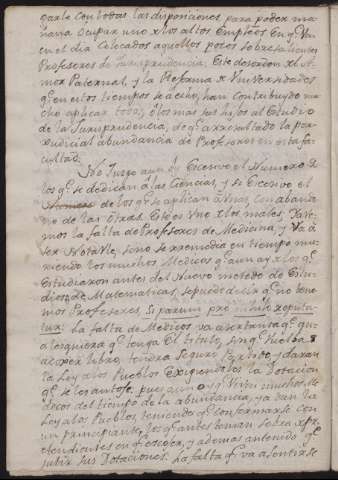 garle con todas las disposiciones para poder ma
ñana ocupar uno de los altos Empleos en qe. ven
en el dia Colocados aquellos pocos sobresalientes
Profesores de Jurisprudencia. Este desorden del A
mor Paternal, y la Reforma de Vniversidades
qe. en estos tiempos se a echo, han Contribuido mu
cho aplicar todos, ó los mas sus hijos al Estudio
de la Jurisprudencia, de qe. a resultado la per
judicial abundancia de Profesores en esta fa
cultad.
No Juzgo aun qe. Excesivo el Numero de
los qe. se dedican á las Ciencias, y si Excesivo el
de los qe. se aplican á Vnas, con abando
no de las otras. Este es Vno de los males, Tene
mos la falta de Profesores de Medicina, y Va á
ser Notable, sino se remedia en tiempo, mu
riendo los muchos Medicos qe. aun ay de los qe.
Estudiaron antes del Nuevo metodo de Estu
dios; de Matematicas, se puede decir qe. no tene
mos Profesores, Si parum pro nihilo reputa
tur: La falta de Medicos va a ser tanta qe. qua
lesquiera qe. tenga El titulo, sin qe. Vuelba á
ver Libro, tendra Seguro Partido, y daran
la Ley a los Pueblos Exigiendoles la Dotacion
qe. se les antoje, pues aun oy qe. Viven muchos Me
dicos del tiempo de la abundancia, ya dan la
Ley a los Pueblos, teniendo qe. conformarse con
un principiante, los qe. antes tenian
tendientes en qe. escoger, y ademas antiendo qe.
subir sus Dotaciones. La falta qe. va a sentirse